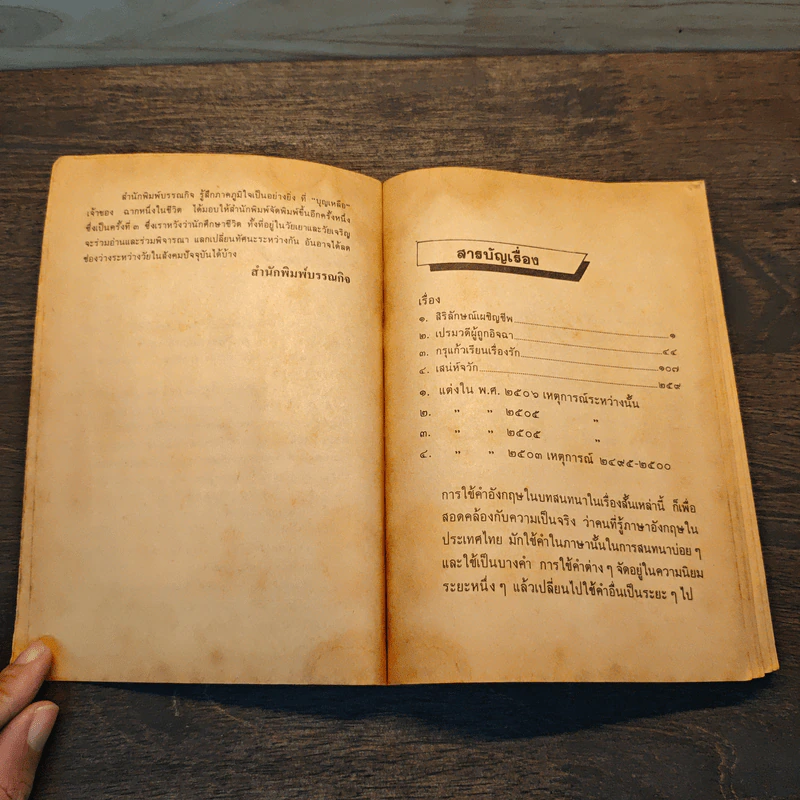 สำนักพิมพ์บรรณกิจ รู้สึกภาคภูมิใจเป็นอย่างยิ่ง ที่ "บุญเหลือ"
เจ้าของ ฉากหนึ่งในชีวิต ได้มอบให้สำนักพิมพ์จัดพิมพ์ขึ้นอีกครั้งหนึ่ง
ซึ่งเป็นครั้งที่ ๓ ซึ่งเราหวังว่านักศึกษาชีวิต ทั้งที่อยู่ในวัยเยาและวัยเจริญ
จะร่วมอ่านและร่วมพิจารณา แลกเปลี่ยนทัศนะระหว่างกัน อันอาจได้ลด
ช่องว่างระหว่างวัยในสังคมปัจจุบันได้บ้าง
สำนักพิมพ์บรรณกิจ
สารบัญเรื่อง
เรื่อง
๑. สิริลักษณ์เผชิญชีพ
๒. เปรมวดีผู้ถูกอิจฉา ๑
๓. กรุแก้วเรียนเรื่องรัก ๔๔
๔. เสน่ห์จวัก ๑๐๗
๒๕๙
๑. แต่งใน พ.ศ. ๒๕๐๖ เหตุการณ์ระหว่างนั้น
๒. " " ๒๕๐๕ "
๓. " " ๒๕๐๕ "
๔. " " ๒๕๐๓ เหตุการณ์ ๒๔๙๕-๒๕๐๐
การใช้คำอังกฤษในบทสนทนาในเรื่องสั้นเหล่านี้ ก็เพื่อ
สอดคล้องกับความเป็นจริง ว่าคนที่รู้ภาษาอังกฤษใน
ประเทศไทย มักใช้คำในภาษานั้นในการสนทนาบ่อย ๆ
และใช้เป็นบางคำ การใช้คำต่าง ๆ จัดอยู่ในความนิยม
ระยะหนึ่ง ๆ แล้วเปลี่ยนไปใช้คำอื่นเป็นระยะ ๆ ไป